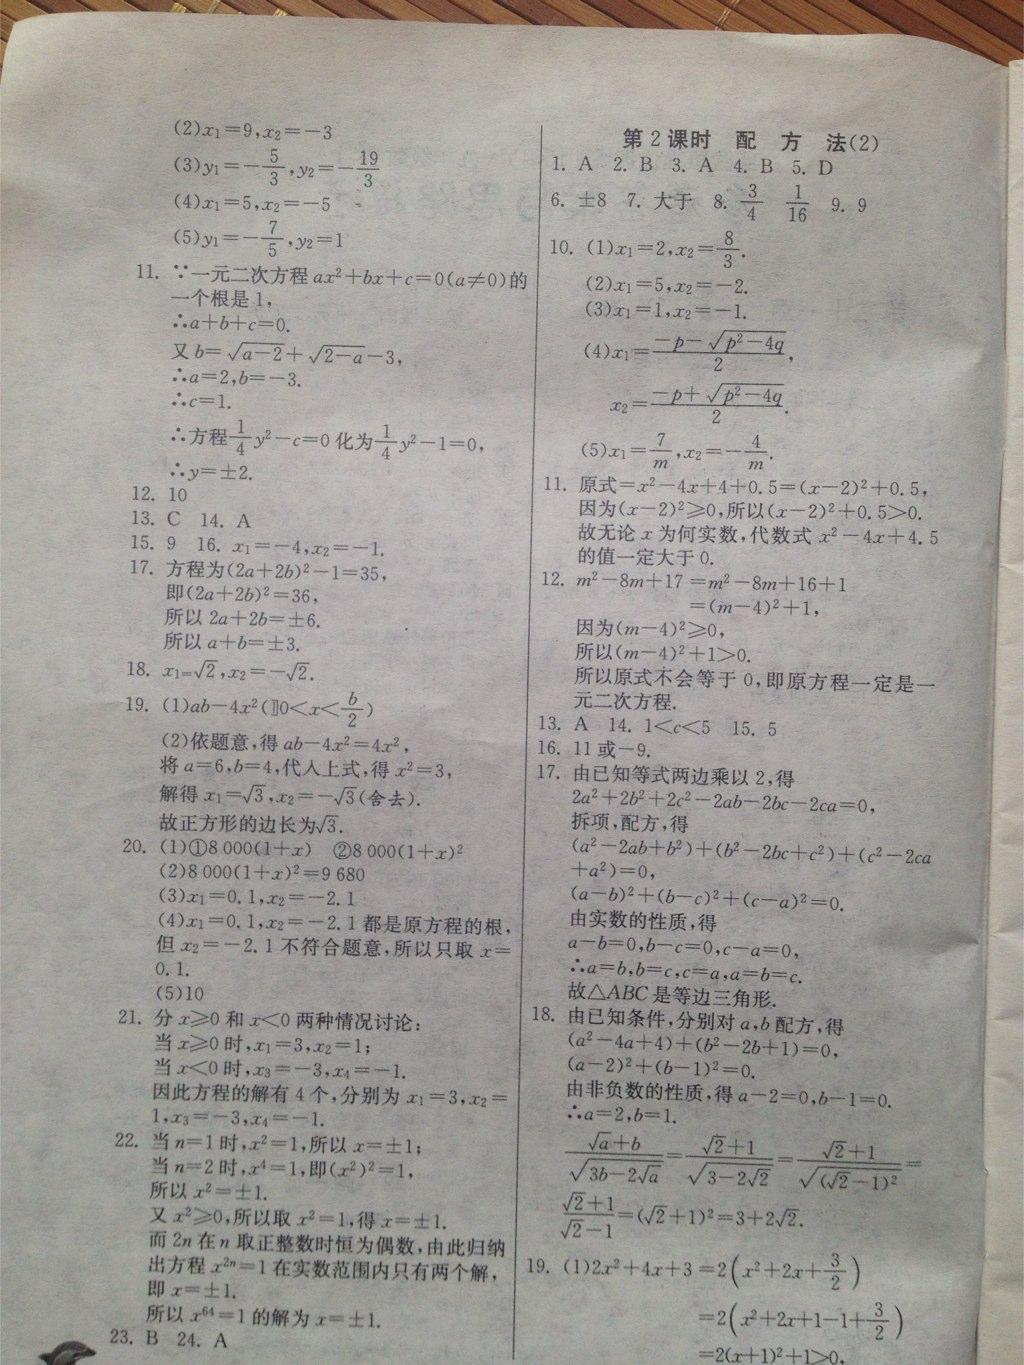 (2)x₁=9,x₂=-3
(3)y₁=-5/3,y₂=-19/3
(4)x₁=5,x₂=-5
(5)y₁=-7/5,y₂=1
11. ∵一元二次方程 ax²+bx+c=0(a≠0)的
一个根是1,
∴a+b+c=0.
又 b=√(a-2)+√(2-a)-3,
∴a=2,b=-3.
∴c=1.
∴方程1/4y²-c=0化为1/4y²-1=0,
∴y=±2.
12. 10
13. C 14. A
15. 9 16. x₁=-4,x₂=-1.
17. 方程为(2a+2b)²-1=35,
即(2a+2b)²=36,
所以 2a+2b=±6.
所以 a+b=±3.
18. x₁=√2,x₂=-√2.
19. (1)ab-4x²(0<x<b/2)
(2)依题意,得 ab-4x²=4x²,
将 a=6,b=4,代入上式,得 x²=3,
解得 x₁=√3,x₂=-√3(舍去).
故正方形的边长为√3.
20. (1)①8 000(1+x) ②8 000(1+x)²
(2)8 000(1+x)²=9 680
(3)x₁=0.1,x₂=-2.1
(4)x₁=0.1,x₂=-2.1都是原方程的根,
但 x₂=-2.1不符合题意,所以只取 x=
0.1.
(5)10
21. 分 x≥0 和 x<0 两种情况讨论:
当 x≥0 时,x₁=3,x₂=1;
当 x<0 时,x₃=-3,x₄=-1.
因此方程的解有4个,分别为 x₁=3,x₂=
1,x₃=-3,x₄=-1.
22. 当 n=1 时,x²=1,所以 x=±1;
当 n=2 时,x⁴=1,即(x²)²=1,
所以 x²=±1.
又 x²≥0,所以取 x²=1,得 x=±1.
而 2n 在 n 取正整数时恒为偶数,由此归纳
出方程 x²ⁿ=1 在实数范围内只有两个解,
即 x=±1.
所以 x⁶⁴=1 的解为 x=±1.
23. B 24. A
第2课时 配 方 法(2)
1. A 2. B 3. A 4. B 5. D
6. ±8 7. 大于 8. 3/4 1/16 9. 9
10. (1)x₁=2,x₂=8/3.
(2)x₁=5,x₂=-2.
(3)x₁=1,x₂=-1.
(4)x₁=(-p-√(p²-4q))/2,
x₂=(-p+√(p²-4q))/2.
(5)x₁=7/m,x₂=-4/m.
11. 原式=x²-4x+4+0.5=(x-2)²+0.5,
因为(x-2)²≥0,所以(x-2)²+0.5>0.
故无论 x 为何实数,代数式 x²-4x+4.5
的值一定大于0.
12. m²-8m+17=m²-8m+16+1
=(m-4)²+1,
因为(m-4)²≥0,
所以(m-4)²+1>0.
所以原式不会等于0,即原方程一定是一
元二次方程.
13. A 14. 1<c<5 15. 5
16. 11或-9.
17. 由已知等式两边乘以2,得
2a²+2b²+2c²-2ab-2bc-2ca=0,
拆项,配方,得
(a²-2ab+b²)+(b²-2bc+c²)+(c²-2ca
+a²)=0,
(a-b)²+(b-c)²+(c-a)²=0.
由实数的性质,得
a-b=0,b-c=0,c-a=0,
∴a=b,b=c,c=a,a=b=c.
故△ABC是等边三角形.
18. 由已知条件,分别对 a,b 配方,得
(a²-4a+4)+(b²-2b+1)=0,
(a-2)²+(b-1)²=0.
由非负数的性质,得 a-2=0,b-1=0.
∴a=2,b=1.
(√a+b)/√(3b-2√a)=(√2+1)/√(3-2√2)=(√2+1)/√((√2-1)²)=
(√2+1)/(√2-1)=(√2+1)²=3+2√2.
19. (1)2x²+4x+3=2(x²+2x+3/2)
=2(x²+2x+1-1+3/2)
=2(x+1)²+1>0.